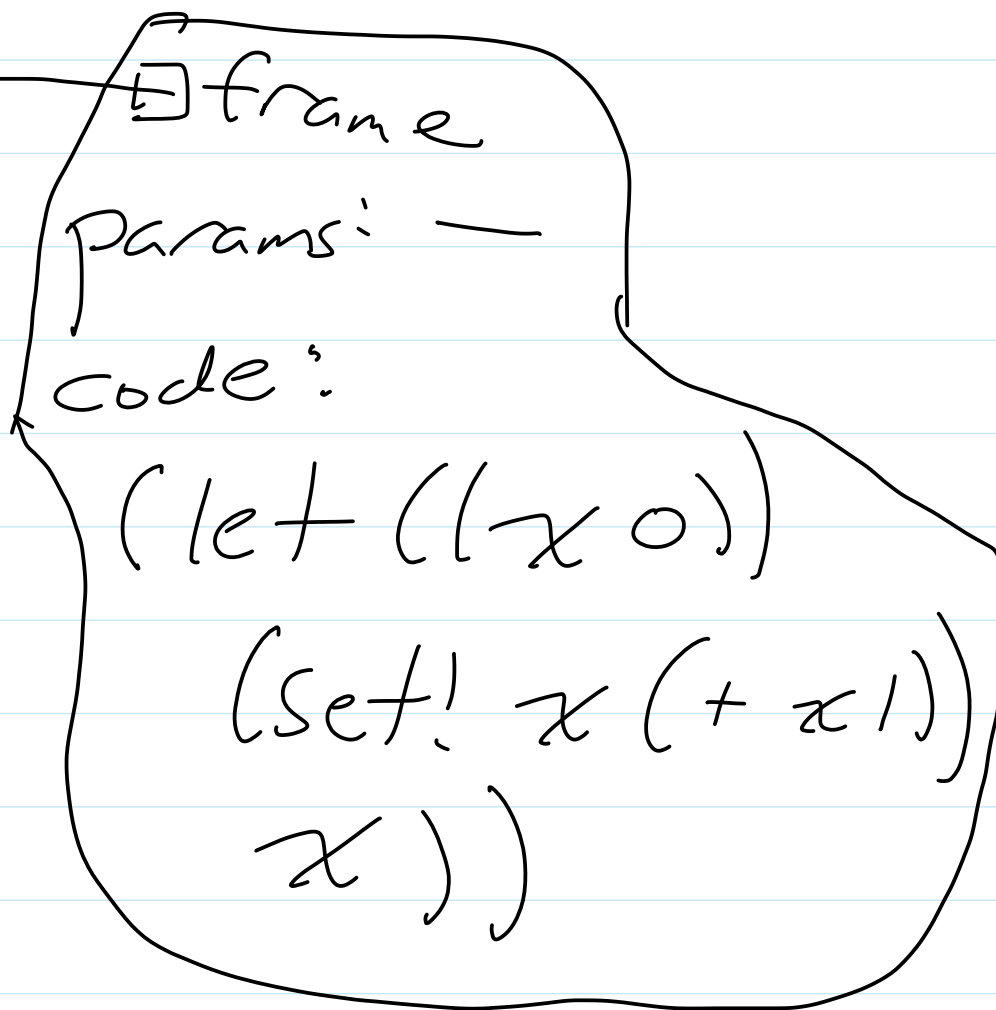 frame
params: —
code:
(let ((x 0))
(set! x (+ x 1))
x))